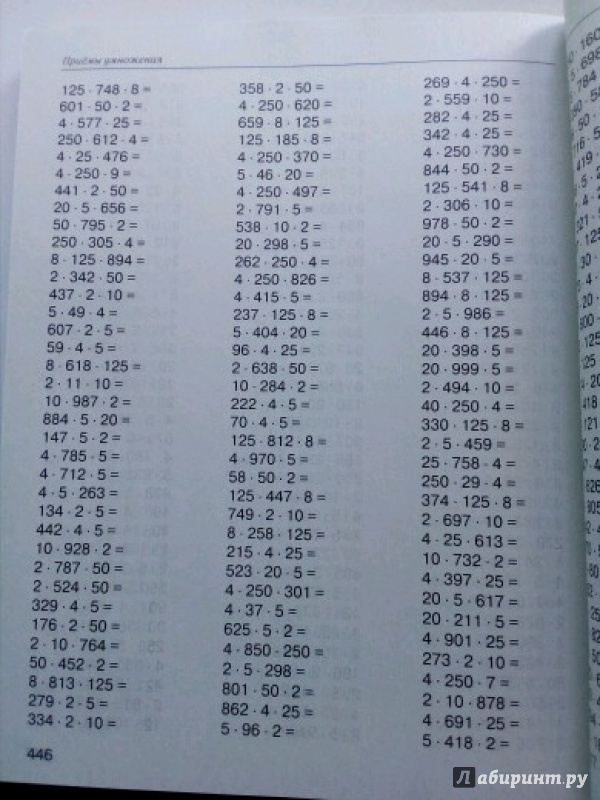 Приёмы умножения
125 · 748 · 8 =
601 · 50 · 2 =
4 · 577 · 25 =
250 · 612 · 4 =
4 · 25 · 476 =
4 · 250 · 9 =
441 · 2 · 50 =
20 · 5 · 656 =
50 · 795 · 2 =
250 · 305 · 4 =
8 · 125 · 894 =
2 · 342 · 50 =
437 · 2 · 10 =
5 · 49 · 4 =
607 · 2 · 5 =
59 · 4 · 5 =
8 · 618 · 125 =
2 · 11 · 10 =
10 · 987 · 2 =
884 · 5 · 20 =
147 · 5 · 2 =
4 · 785 · 5 =
4 · 712 · 5 =
4 · 5 · 263 =
134 · 2 · 5 =
442 · 4 · 5 =
10 · 928 · 2 =
2 · 787 · 50 =
2 · 524 · 50 =
329 · 4 · 5 =
176 · 2 · 50 =
2 · 10 · 764 =
50 · 452 · 2 =
8 · 813 · 125 =
279 · 2 · 5 =
334 · 2 · 10 =
358 · 2 · 50 =
4 · 250 · 620 =
659 · 8 · 125 =
125 · 185 · 8 =
4 · 250 · 370 =
5 · 46 · 20 =
4 · 250 · 497 =
2 · 791 · 5 =
538 · 10 · 2 =
20 · 298 · 5 =
262 · 250 · 4 =
4 · 250 · 826 =
4 · 415 · 5 =
237 · 125 · 8 =
5 · 404 · 20 =
96 · 4 · 25 =
2 · 638 · 50 =
10 · 284 · 2 =
222 · 4 · 5 =
70 · 4 · 5 =
125 · 812 · 8 =
4 · 970 · 5 =
58 · 50 · 2 =
125 · 447 · 8 =
749 · 2 · 10 =
8 · 258 · 125 =
215 · 4 · 25 =
523 · 20 · 5 =
4 · 250 · 301 =
4 · 37 · 5 =
625 · 5 · 2 =
4 · 850 · 250 =
2 · 5 · 298 =
801 · 50 · 2 =
862 · 4 · 25 =
5 · 96 · 2 =
269 · 4 · 250 =
2 · 559 · 10 =
282 · 4 · 25 =
342 · 4 · 25 =
4 · 250 · 730 =
844 · 50 · 2 =
125 · 541 · 8 =
2 · 306 · 10 =
978 · 50 · 2 =
20 · 5 · 290 =
945 · 20 · 5 =
8 · 537 · 125 =
894 · 8 · 125 =
2 · 5 · 986 =
446 · 8 · 125 =
20 · 398 · 5 =
20 · 999 · 5 =
2 · 494 · 10 =
40 · 250 · 4 =
330 · 125 · 8 =
2 · 5 · 459 =
25 · 758 · 4 =
250 · 29 · 4 =
374 · 125 · 8 =
2 · 697 · 10 =
4 · 25 · 613 =
10 · 732 · 2 =
4 · 397 · 25 =
20 · 5 · 617 =
20 · 211 · 5 =
4 · 901 · 25 =
273 · 2 · 10 =
4 · 250 · 7 =
2 · 10 · 878 =
4 · 691 · 25 =
5 · 418 · 2 =
446
Лабиринт.ру